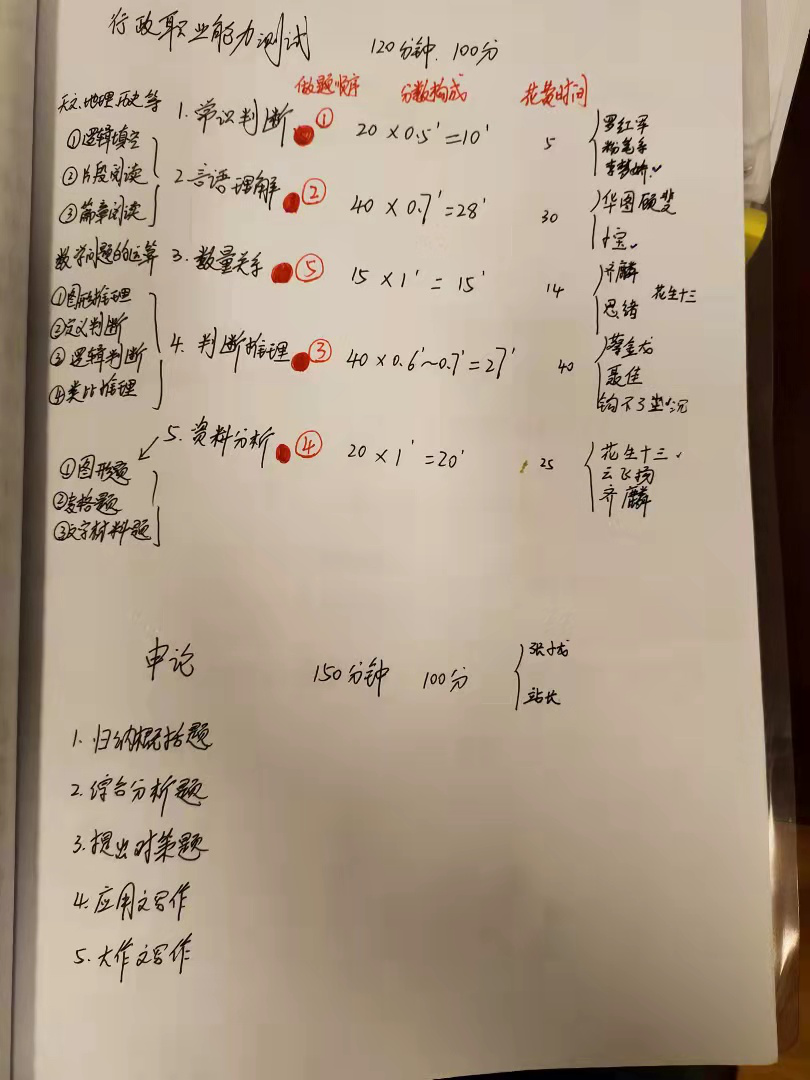 行政职业能力测试 120分钟. 100分
做题顺序 分数构成 花费时间
天文.地理.历史等 1. 常识判断 ① 20×0.5'=10' 5 罗红军
粉笔系
李梦娇
①逻辑填空
②片段阅读
③篇章阅读
2. 言语理解 ② 40×0.7'=28' 30 华图顾斐
数学问题的运算 3. 数量关系 ⑤ 15×1'=15' 14 齐麟
思绪 花生十三
①图形推理
②定义判断
③逻辑判断
④类比推理
4. 判断推理 ③ 40×0.6'~0.7'=27' 40 蔡金龙
聂佳
钩不了沉
5. 资料分析 ④ 20×1'=20' 25 花生十三
云飞扬
齐麟
①图形题
②表格题
③文字材料题
申论 150分钟 100分 张小龙
站长
1. 归纳概括题
2. 综合分析题
3. 提出对策题
4. 应用文写作
5. 大作文写作